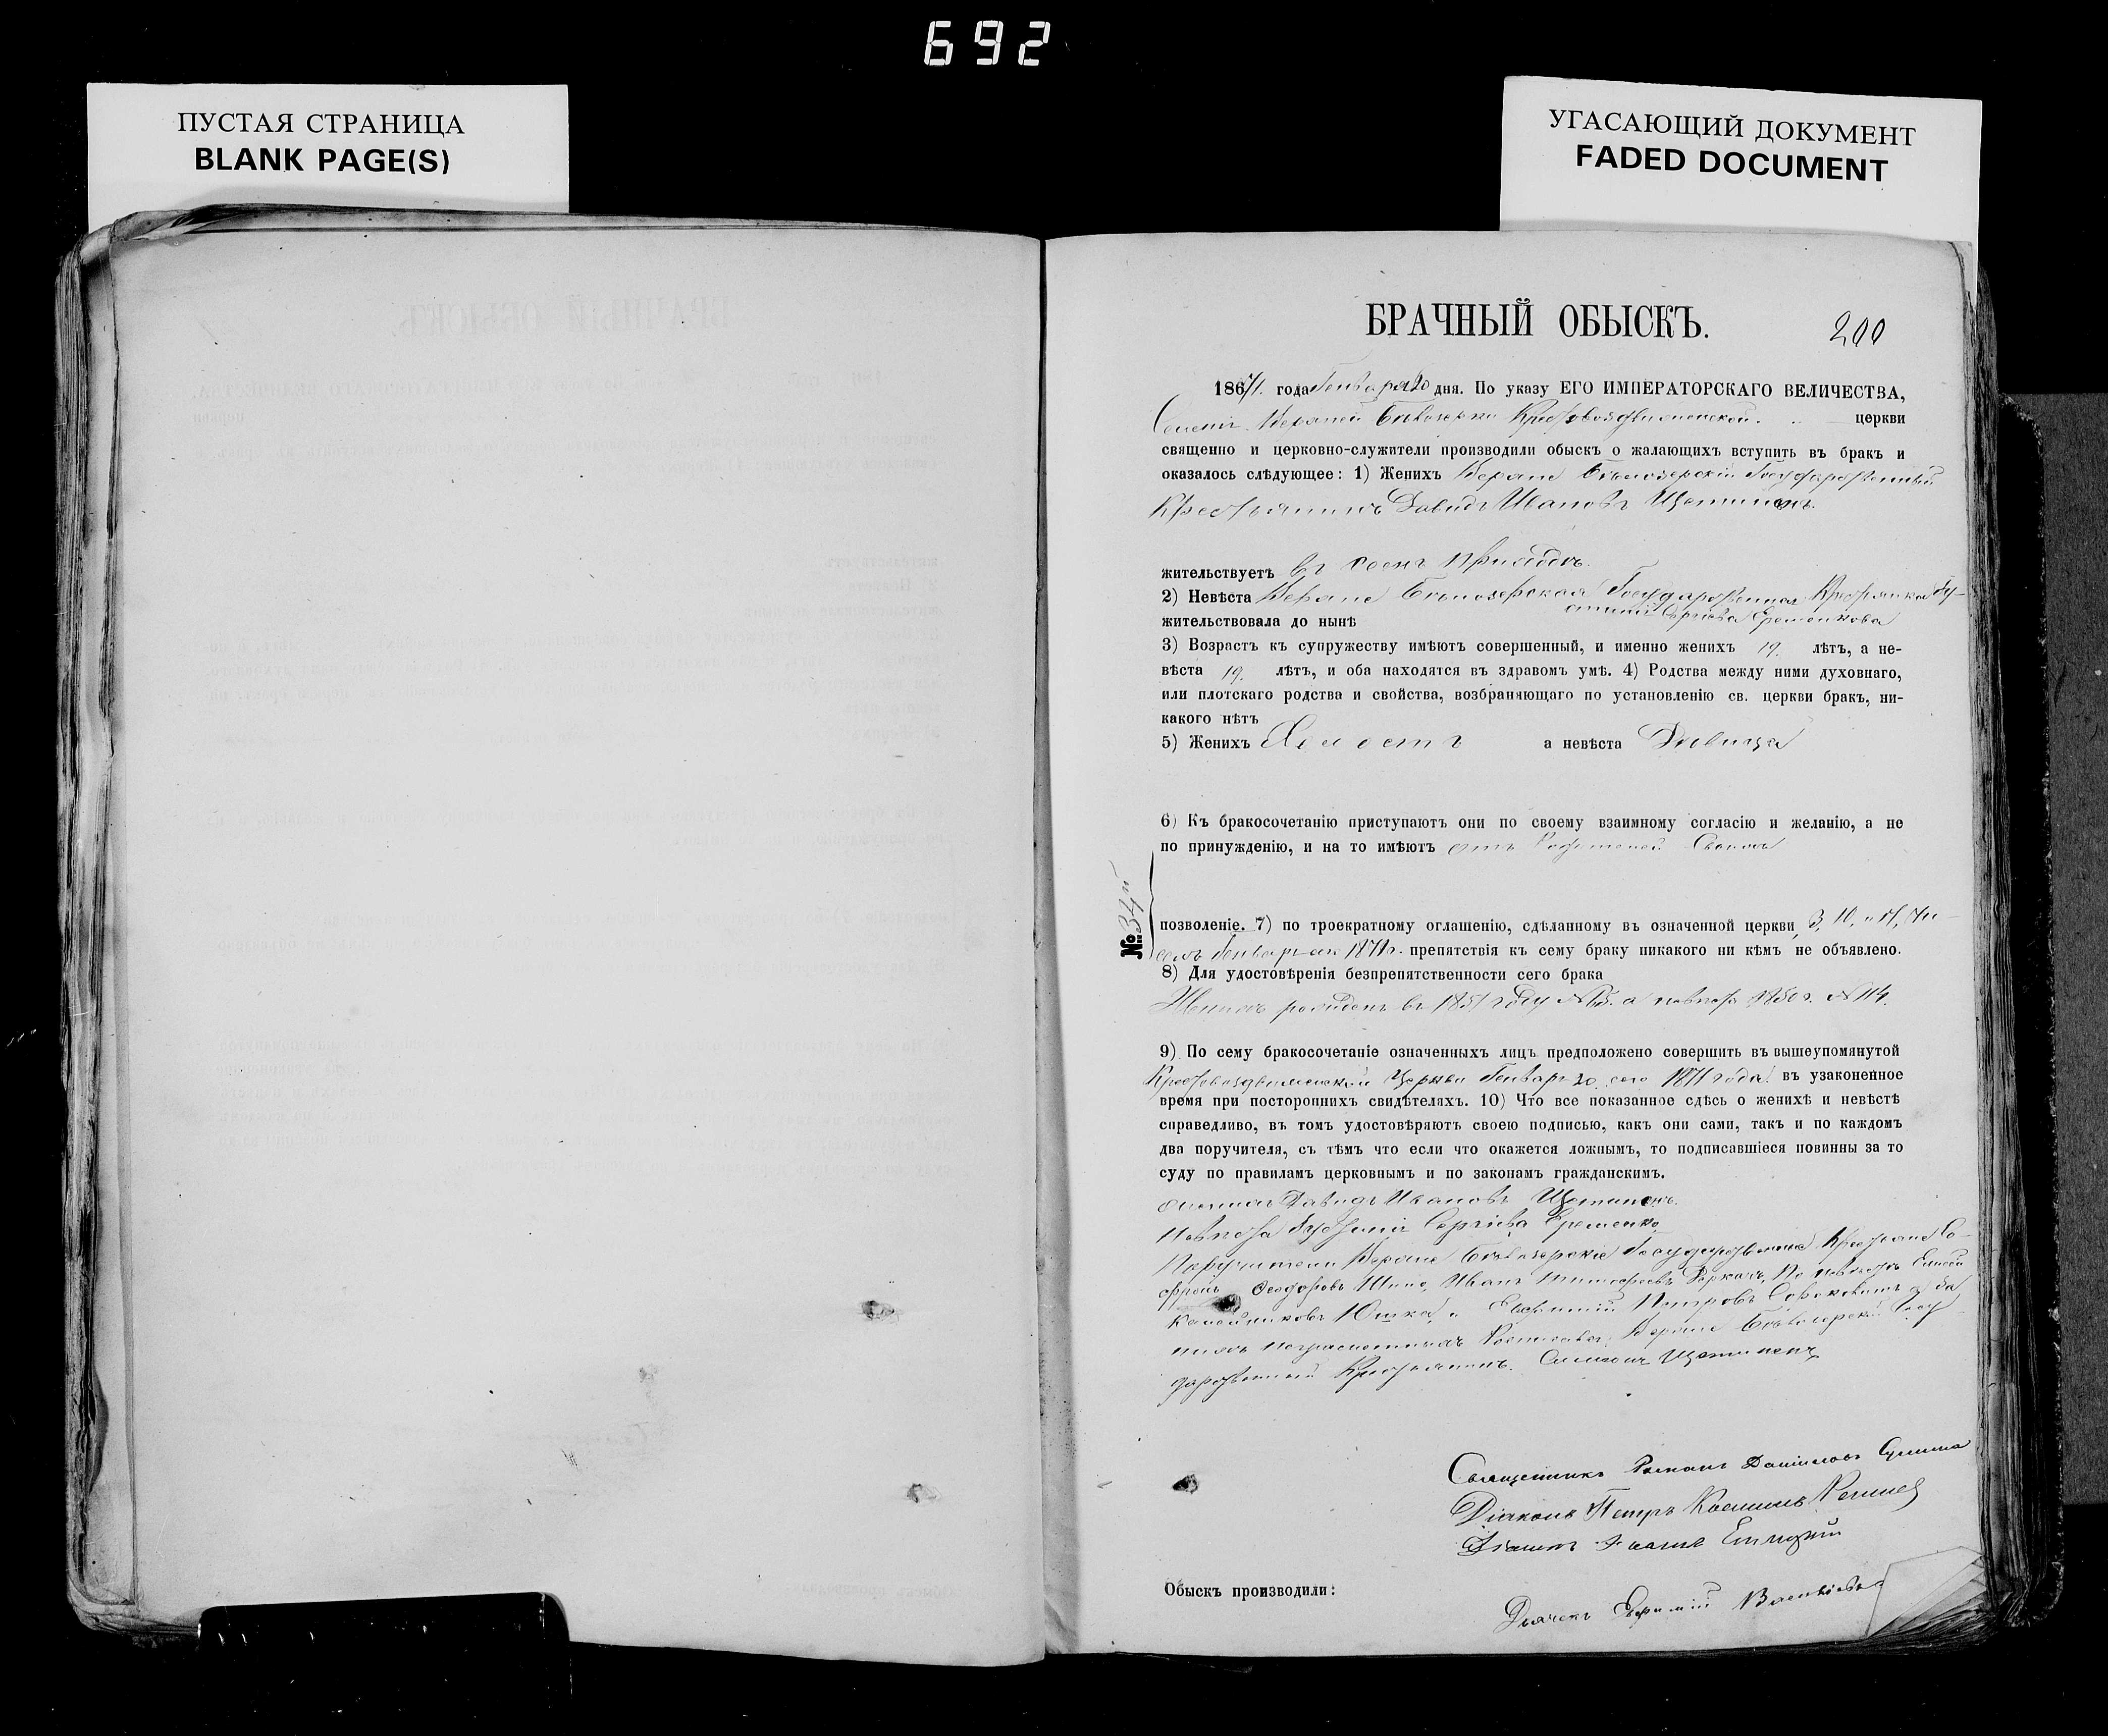 692
ПУСТАЯ СТРАНИЦА
BLANK PAGE(S)
УГАСАЮЩИЙ ДОКУМЕНТ
FADED DOCUMENT
БРАЧНЫЙ ОБЫСКЪ.
200
1867/1. года Генваря 20 дня. По указу ЕГО ИМПЕРАТОРСКАГО ВЕЛИЧЕСТВА,
Верхней Белозерки Крестовоздвиженской церкви
священно и церковно-служители производили обыскъ о жалающихъ вступить въ бракъ и
оказалось слѣдующее: 1) Женихъ Верхне Белозерскій Государственный
Крестьянинъ Давидъ Ивановъ Щетининъ.
жительствуетъ въ семъ приходѣ.
2) Невѣста Верхне Белозерская Государственная Крестьянка Іу-
стинія Сергіева Еременкова
жительствовала до нынѣ
3) Возрастъ къ супружеству имѣютъ совершенный, и именно женихъ 19. лѣтъ, а не-
вѣста 19. лѣтъ, и оба находятся въ здравомъ умѣ. 4) Родства между ними духовнаго,
или плотскаго родства и свойства, возбраняющаго по установленію св. церкви бракъ, ни-
какого нѣтъ
5) Женихъ Холостъ а невѣста Девица
6) Къ бракосочетанію приступаютъ они по своему взаимному согласію и желанію, а не
по принужденію, и на то имѣютъ отъ Родителей Своихъ
№ 34й
позволеніе. 7) по троекратному оглашенію, сдѣланному въ означенной церкви 3, 10, и 17, Чи-
селъ Генваря 1871 г. препятствія къ сему браку никакого ни кѣмъ не объявлено.
8) Для удостовѣренія безпрепятственности сего брака
Женихъ рожденъ въ 1851 году а невѣста 1850 г. № 114.
9) По сему бракосочетаніе означенныхъ лицъ предположено совершить въ вышеупомянутой
Крестовоздвиженской Церкви Генваря 20 сего 1871 года въ узаконенное
время при постороннихъ свидѣтеляхъ. 10) Что все показанное сдѣсь о женихѣ и невѣстѣ
справедливо, въ томъ удостовѣряютъ своею подписью, какъ они сами, такъ и по каждомъ
два поручителя, съ тѣмъ что если что окажется ложнымъ, то подписавшіеся повинны за то
суду по правиламъ церковнымъ и по законамъ гражданскимъ.
Давидъ Ивановъ Щетининъ.
Невѣста Іустинія Сергіева Еременко
Поручители Верхне Белозерскіе Государственные Крестьяне Со-
фроній Феодоровъ Иванъ Тимофеевъ По невѣстѣ
Юшка и Евфимій Петровъ а за
нихъ неграмотныхъ Росписался Верхне Белозерскій Госу
дарственный Крестьянинъ. Симеонъ Щетининъ
Священникъ Романъ Даниловъ Сулима
Діаконъ Петръ Косминъ
Обыскъ производили:
Дьячекъ Евфимій Васильевъ